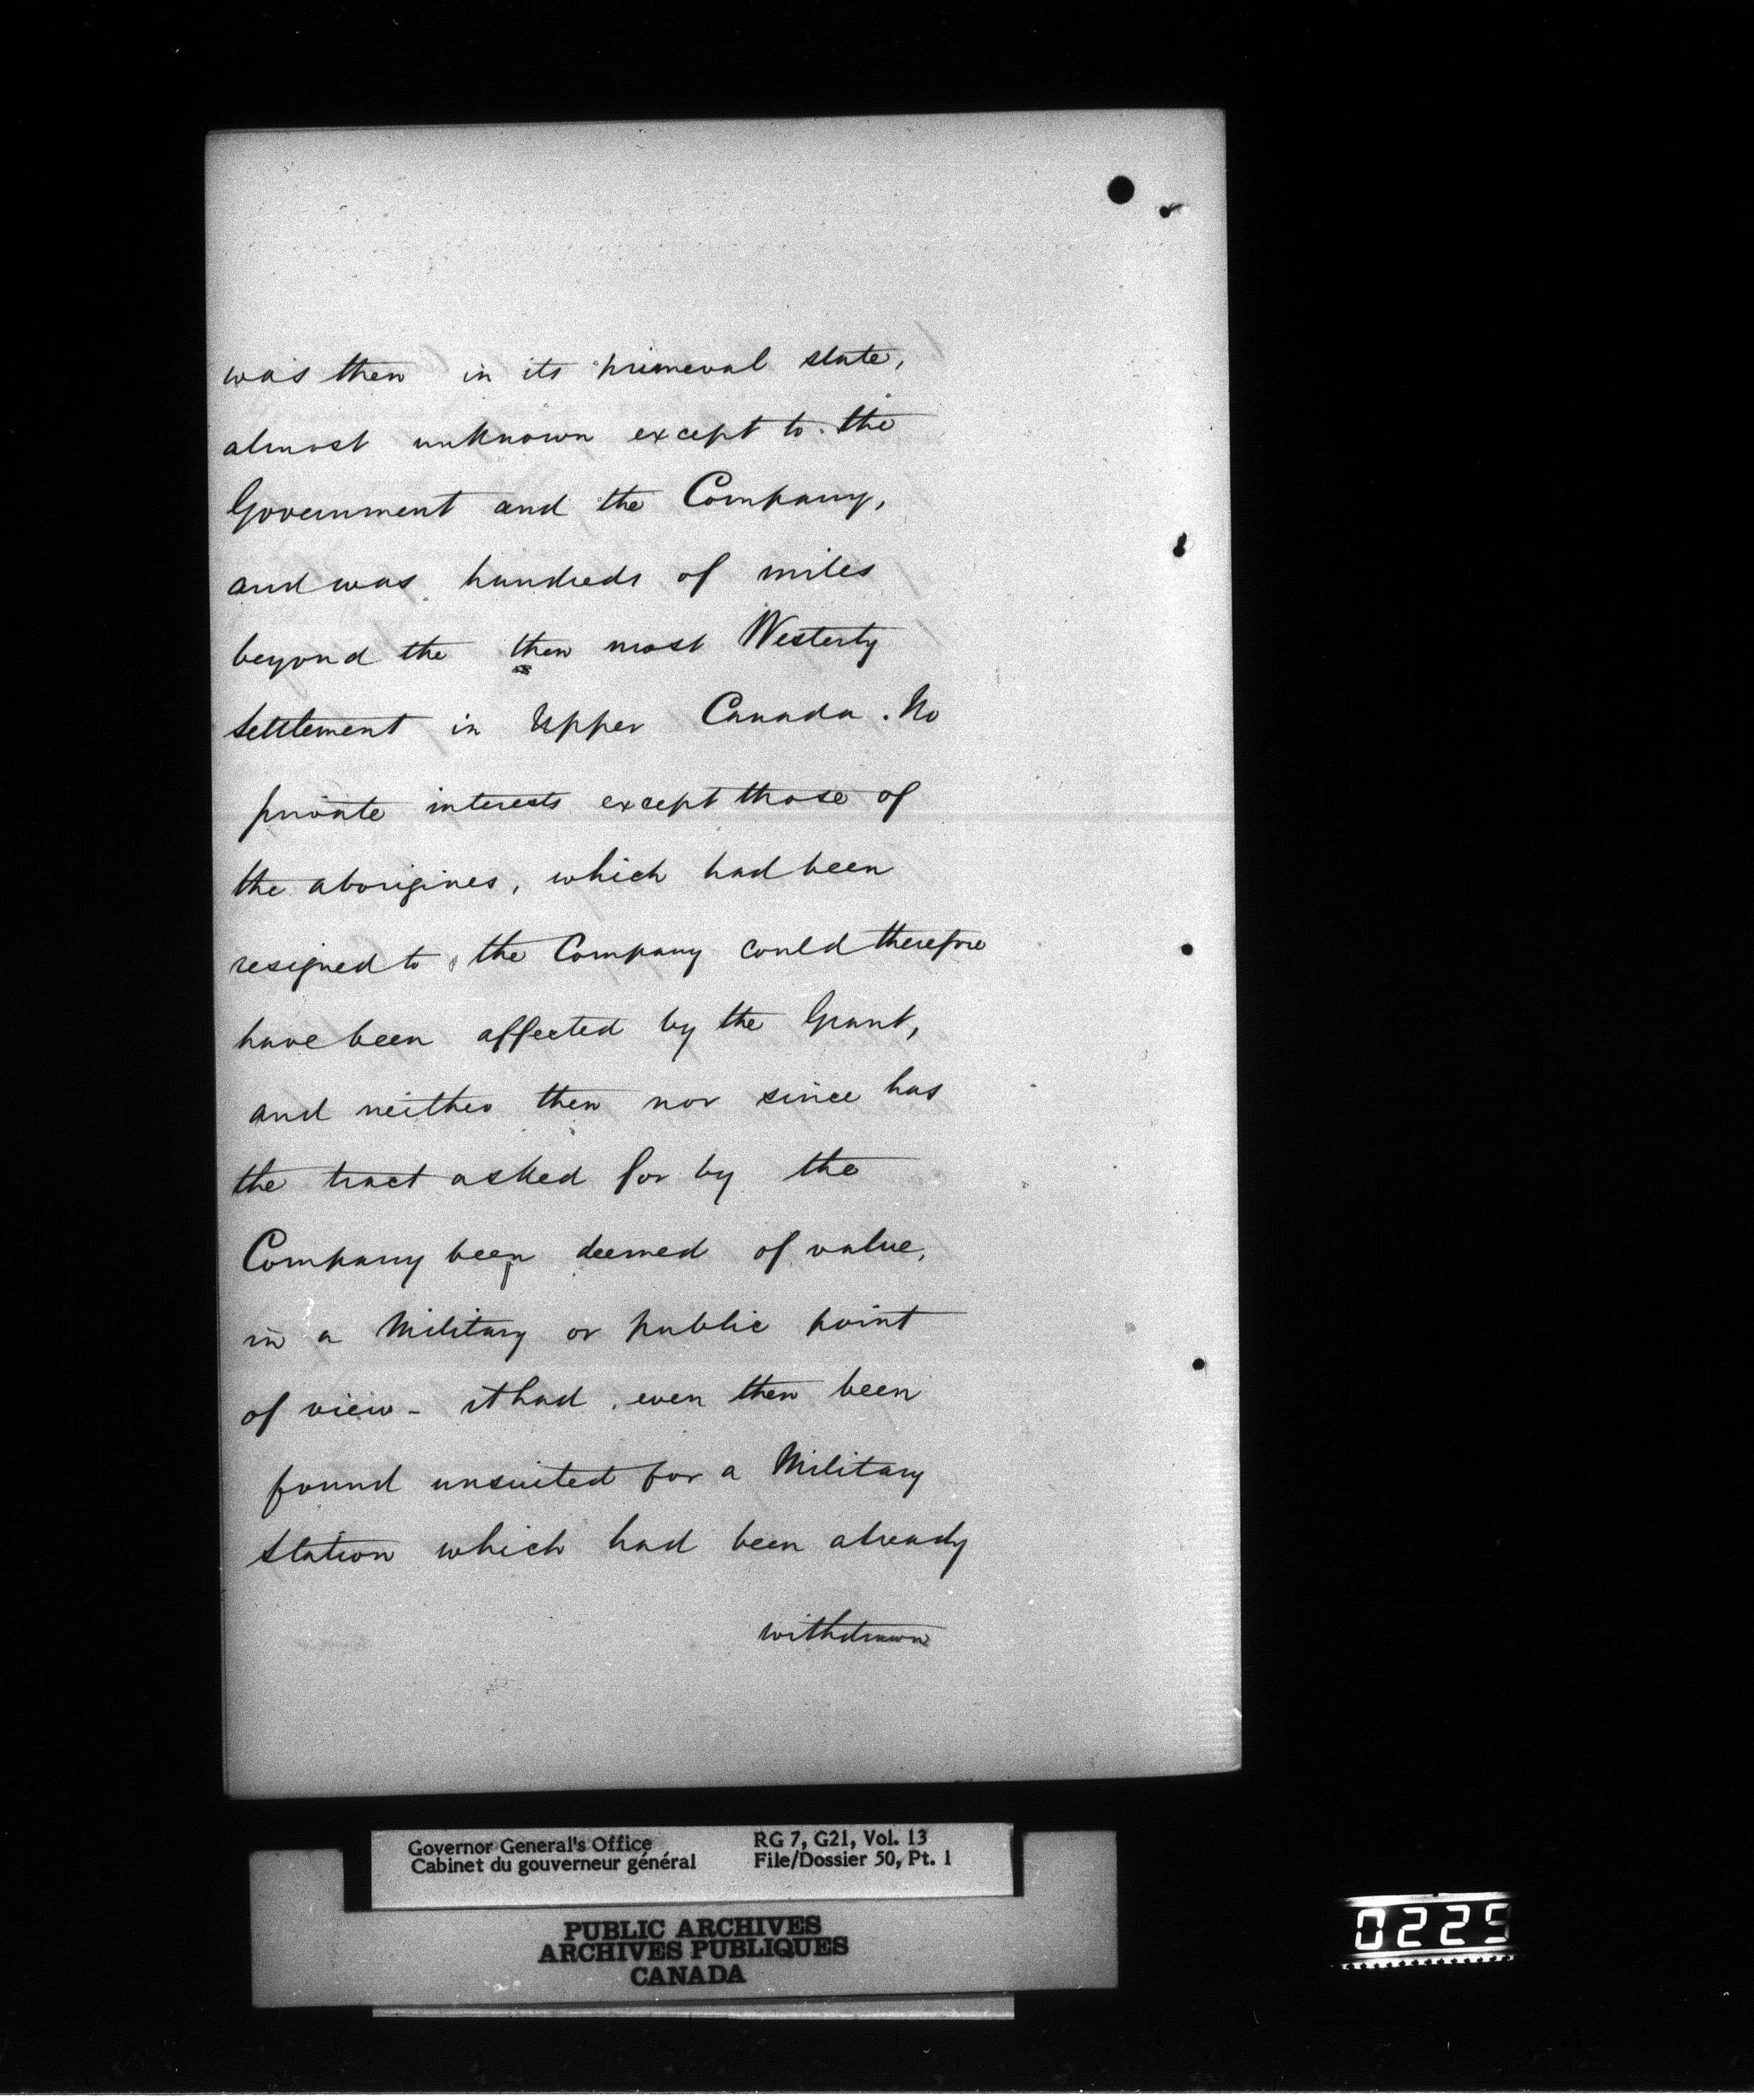 was then in its primeval state,
almost unknown except to the
Government and the Company,
and was hundreds of miles
beyond the then most Westerly
settlement in Upper Canada. No
private interests except those of
the aborigines, which had been
resigned to the Company could therefore
have been affected by the Grant,
and neither then nor since has
the tract asked for by the
Company been deemed of value,
in a Military or public point
of view - it had even then been
found unsuited for a Military
station which had been already
withdrawn
Governor General's Office RG 7, G21, Vol. 13
Cabinet du gouverneur général File/Dossier 50, Pt. 1
PUBLIC ARCHIVES
ARCHIVES PUBLIQUES
CANADA
0225